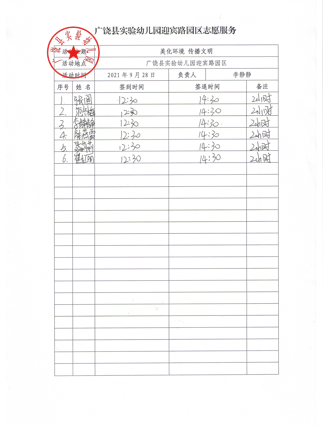 广饶县实验幼儿园迎宾路园区志愿服务
美化环境 传播文明
活动地点 广饶县实验幼儿园迎宾路园区
活动时间 2021年9月28日 负责人 李静静
序号 姓名 签到时间 签退时间 备注
1 12:30 14:30 2小时
2 12:30 14:30 2小时
3 12:30 14:30 2小时
4 12:30 14:30 2小时
5 12:30 14:30 2小时
6 12:30 14:30 2小时